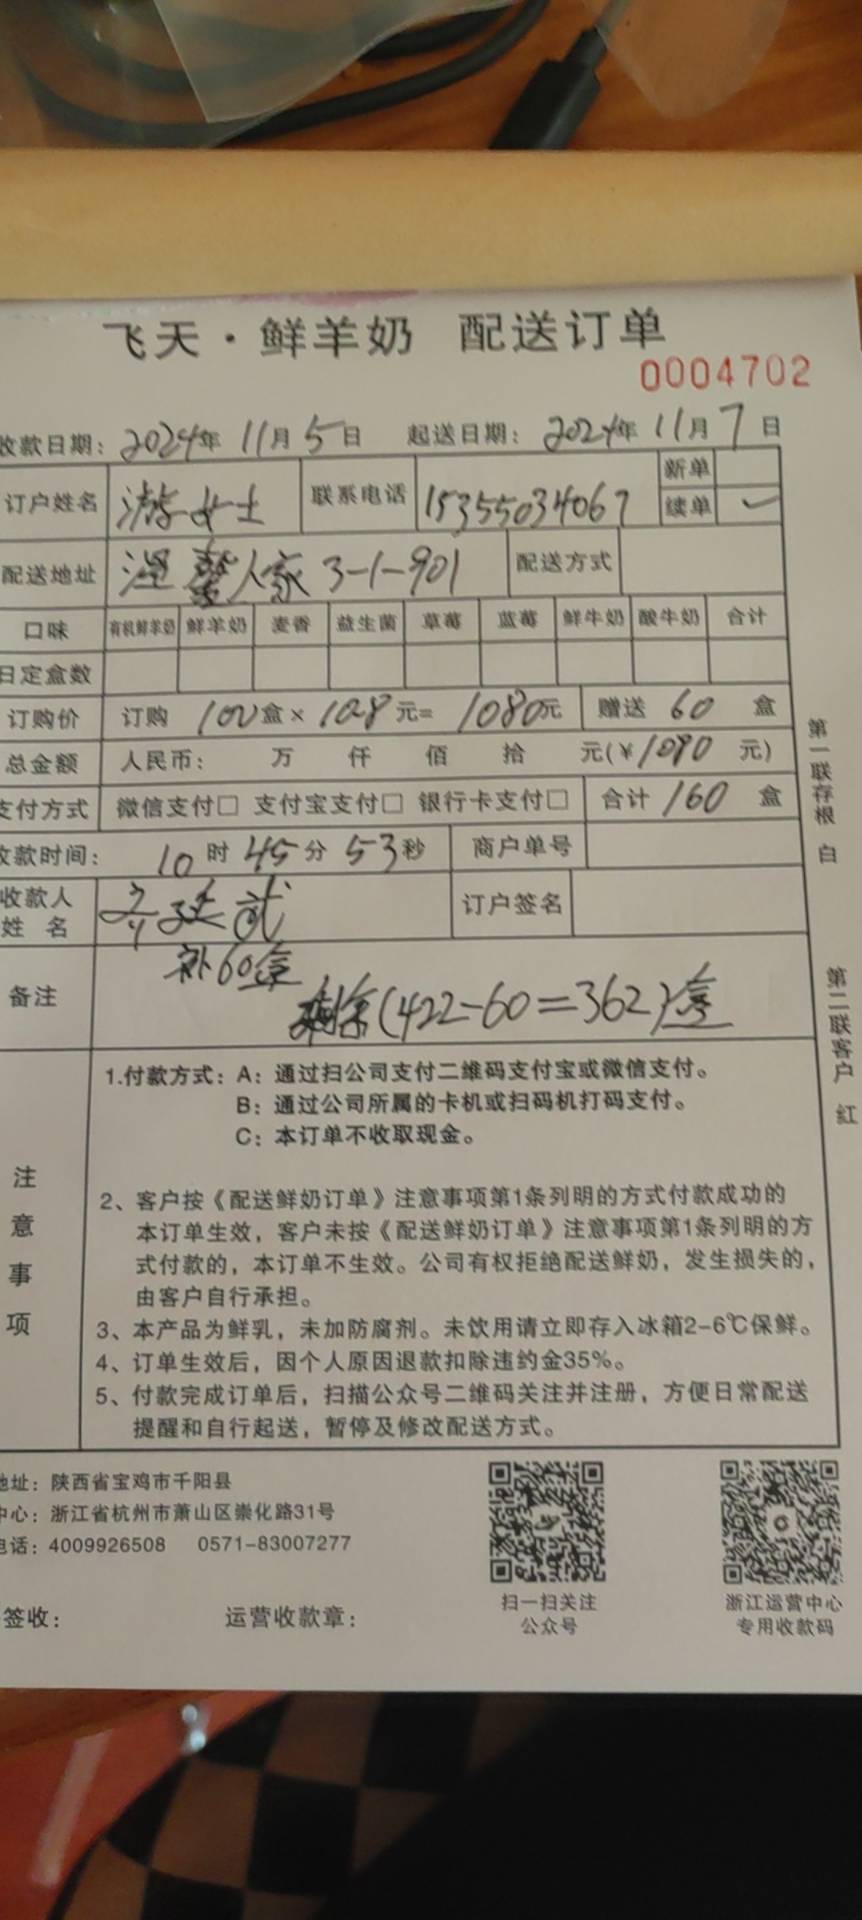 飞天·鲜羊奶 配送订单
0004702
收款日期: 2024年 11月 5日 起送日期: 2024年 11月 7日
订户姓名 游女士 联系电话 15355034067 新单
续单 ✓
配送地址 温馨人家 3-1-901 配送方式
口味 有机鲜羊奶 鲜羊奶 麦香 益生菌 草莓 蓝莓 鲜牛奶 酸牛奶 合计
日定盒数
订购价 订购 100盒× 10.8元= 1080元 赠送 60 盒
总金额 人民币: 万 仟 佰 拾 元(¥1080 元)
支付方式 微信支付□ 支付宝支付□ 银行卡支付□ 合计 160 盒
收款时间: 10时 45分 53秒 商户单号
收款人
姓 名 订户签名
补60盒
备注 剩余(422-60=362)盒
注意事项
1.付款方式: A: 通过扫公司支付二维码支付宝或微信支付。
B: 通过公司所属的卡机或扫码机打码支付。
C: 本订单不收取现金。
2、客户按《配送鲜奶订单》注意事项第1条列明的方式付款成功的
本订单生效，客户未按《配送鲜奶订单》注意事项第1条列明的方
式付款的，本订单不生效。公司有权拒绝配送鲜奶，发生损失的，
由客户自行承担。
3、本产品为鲜乳，未加防腐剂。未饮用请立即存入冰箱2-6℃保鲜。
4、订单生效后，因个人原因退款扣除违约金35%。
5、付款完成订单后，扫描公众号二维码关注并注册，方便日常配送
提醒和自行起送，暂停及修改配送方式。
第一联存根 白
第二联客户 红
地址: 陕西省宝鸡市千阳县
中心: 浙江省杭州市萧山区崇化路31号
电话: 4009926508 0571-83007277
签收: 运营收款章:
扫一扫关注
公众号
浙江运营中心
专用收款码